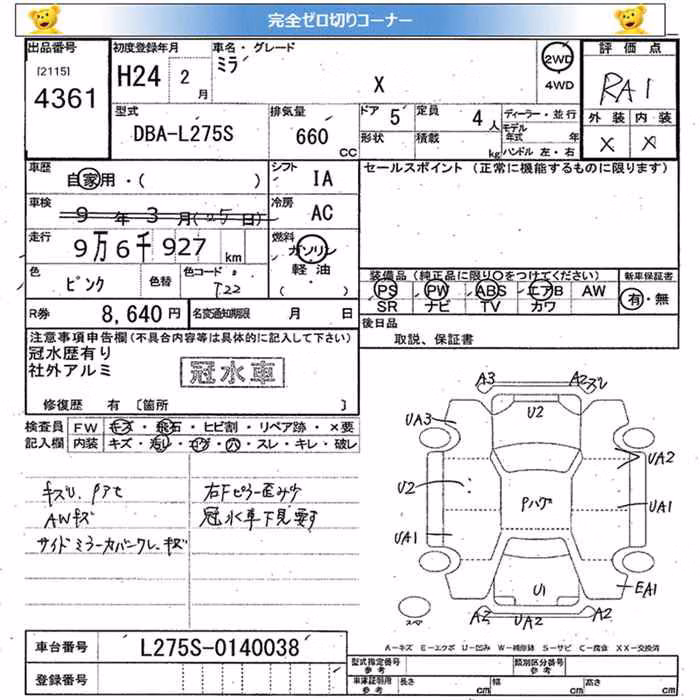 完全ゼロ切りコーナー
出品番号 初度登録年月 車名・グレード 2WD 評価点
[2115] 4361 H24 2月 ミラ X 4WD RA1
型式 排気量 ドア 定員 ディーラー・並行 外装 内装
DBA-L275S 660 CC 5 4人 モデル年式 年 X X
形状 積載 kg ハンドル 左・右
車歴 自家用・( ) シフト IA セールスポイント (正常に機能するものに限ります)
車検 9年3月(25日) 冷房 AC
走行 9万6千927 km 燃料 ガソリン 軽油 ( )
色 ピンク 色替 色コード T22
装備品 (純正品に限り○をつけてください) 新車保証書
PS PW ABS エアB AW 有・無
SR ナビ TV カワ
R券 8,640円 名変通知期限 月 日
後日品 取説、保証書
注意事項申告欄 (不具合内容等は具体的に記入して下さい)
冠水歴有り
社外アルミ 冠水車
修復歴 有 〔箇所 〕
検査員 FW キズ・飛石・ヒビ割・リペア跡・×要
記入欄 内装 キズ・汚レ・コゲ・穴・スレ・キレ・破レ
キズU、アセ 右Fピラー歪み有
AWキズ 冠水車下見要す
サイドミラーカバーワレ、キズ
A3 A2スレ
UA3 U2
UA2
U2 Pハゲ UA1
UA1
U1 EA1
スペア A2 UA2 A2
A-キズ E-エクボ U-凹み W-補修跡 S-サビ C-腐食 XX-交換済
車台番号 L275S-0140038
登録番号
型式指定番号 参考 類別区分番号 参考
車庫証明用 参考 長さ cm 幅 cm 高さ cm